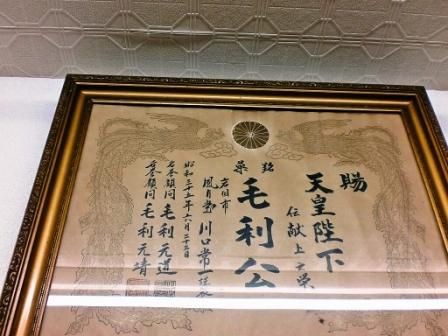 賜
天皇陛下
伝献上之栄
銘菓
毛利公
岩国市
風月堂 川口常一
昭和三十五年六月二十三日
名誉顧問 毛利元道
名誉顧問 毛利元靖